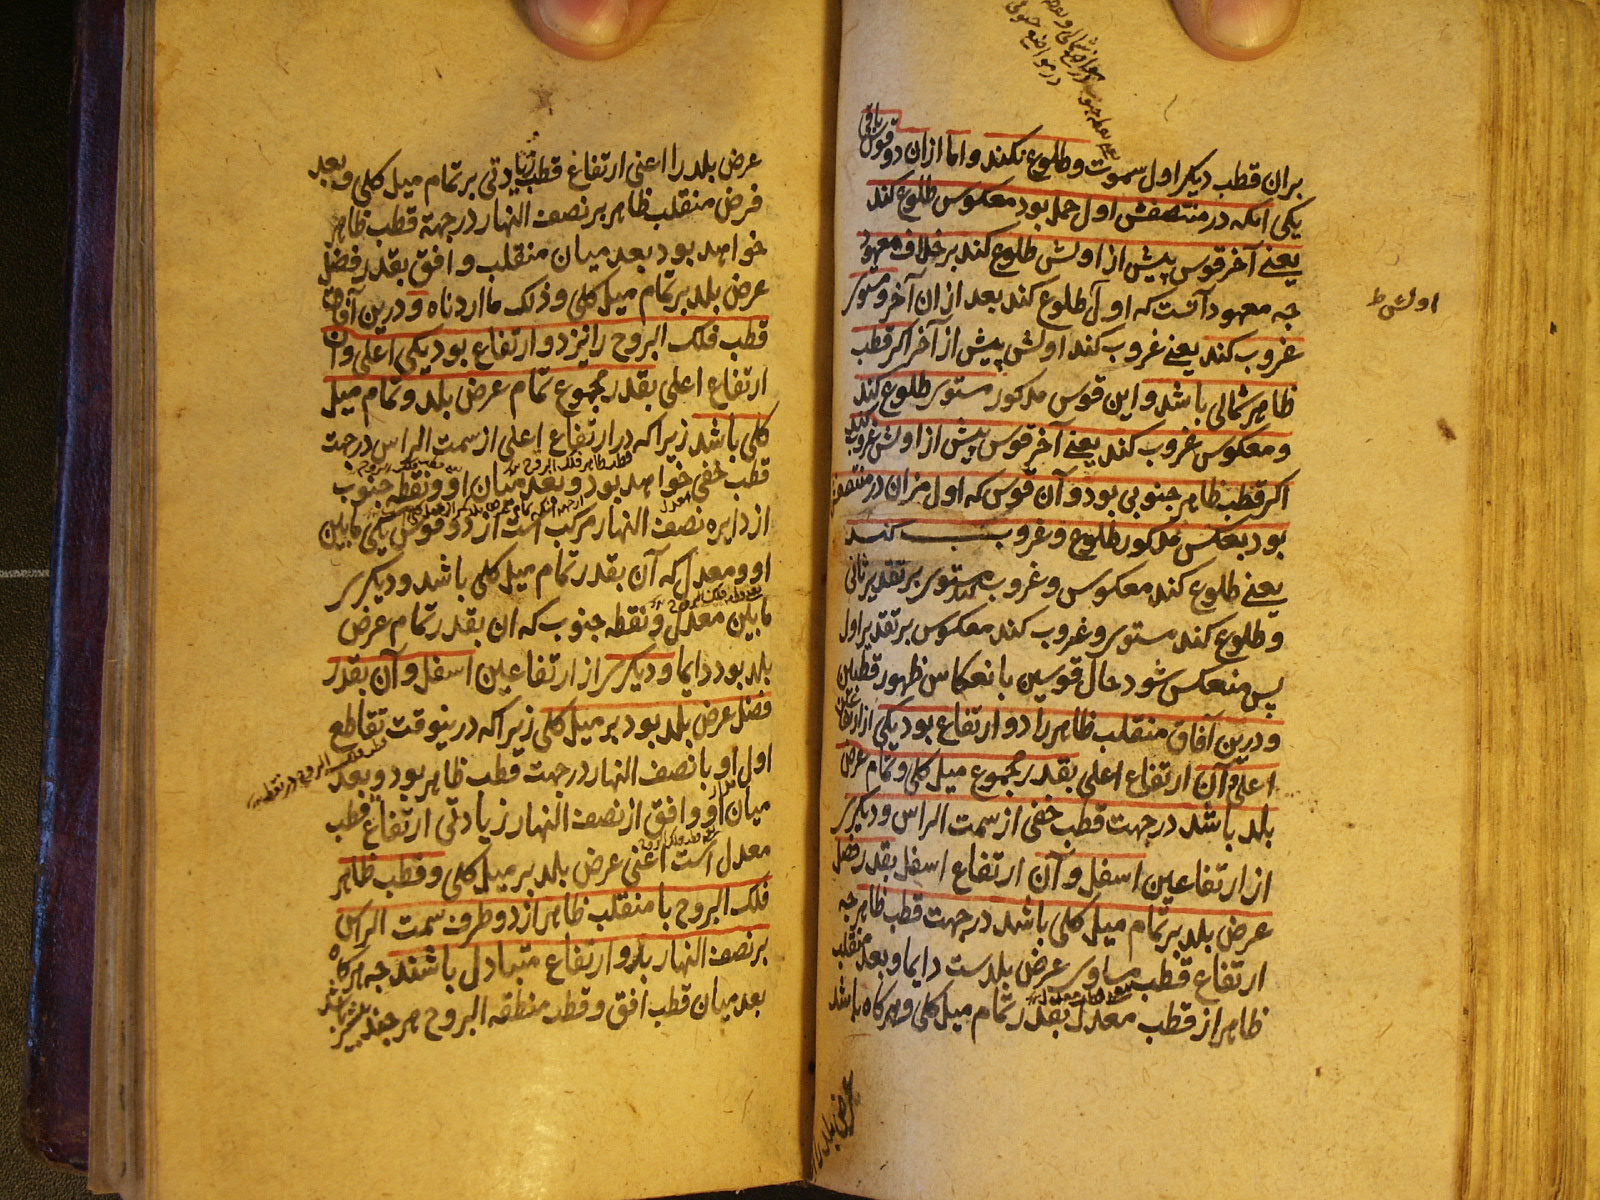 بران قطب دیکر اول سموت و طلوع نکند و اما ازان دو قوس باقی
یکی انکه در منتصفش اول حمل بود معکوس طلوع کند
یعنے آخر قوس پیش از اولش طلوع کند بر خلاف معهود
جه معهود آنست که اول طلوع کند بعد ازان آخر و مستوی
غروب کند یعنے غروب کند اولش پیش از آخر اکر قطب
ظاهر شمالی باشد و این قوس مذکور مستوی طلوع کند
و معکوس غروب کند یعنے آخر قوس پیش از اولش غروب کند
اکر قطب ظاهر جنوبی بود و آن قوس که اول میزان در منتصفش
بود بعکس مذکور طلوع و غروب کند
یعنے طلوع کند معکوس و غروب کند مستوی بر تقدیر ثانی
و طلوع کند مستوی و غروب کند معکوس بر تقدیر اول
پس منعکس شود حال قوسین بانعکاس ظهور قطبین
و درین آفاق منقلب ظاهر را دو ارتفاع بود یکی از ارتفاعین
اعلی و آن ارتفاع اعلی بقدر مجموع میل کلی و تمام عرض
بلد باشد در جهت قطب خفی از سمت الراس و دیکری
از ارتفاعین اسفل و آن ارتفاع اسفل بقدر فضل
عرض بلد بر تمام میل کلی باشد در جهت قطب ظاهر جه
ارتفاع قطب مساوی عرض بلدست دایما و بعد منقلب
ظاهر از قطب معدل بقدر تمام میل کلی و هرکاه باشد
عرض بلد را
اولش ط
عرض بلد را اعنی ارتفاع قطب زیادتی بر تمام میل کلی و بعد
فرض منقلب ظاهر بر نصف النهار در جهة قطب ظاهر
خواهد بود بعد میان منقلب و افق بقدر فضل
عرض بلد بر تمام میل کلی و ذلک ما اردناه و درین آفاق
قطب فلک البروج را نیز دو ارتفاع بود یکی اعلی و آن
ارتفاع اعلی بقدر مجموع تمام عرض بلد و تمام میل
کلی باشد زیرا که در ارتفاع اعلی از سمت الراس در جهت
قطب خفی خواهد بود و بعد میان او و نقطه جنوب
از دایره نصف النهار مرکب است از دو قوس یکی مابین
او و معدل که آن بقدر تمام میل کلی باشد و دیکری
مابین معدل و نقطه جنوب که ان بقدر تمام عرض
بلد بود دایما و دیکری از ارتفاعین اسفل و آن بقدر
فضل عرض بلد بود بر میل کلی زیرا که درینوقت تقاطع
اول او با نصف النهار در جهت قطب ظاهر بود و بعد
میان او و افق از نصف النهار زیادتی ارتفاع قطب
معدل است اعنی عرض بلد بر میل کلی و قطب ظاهر
فلک البروج با منقلب ظاهر از دو طرف سمت الراس
بر نصف النهار بدو ارتفاع متبادل باشند جه هرکاه
بعد میان قطب افق و قطب منطقه البروج هر جند بیشتر باشد